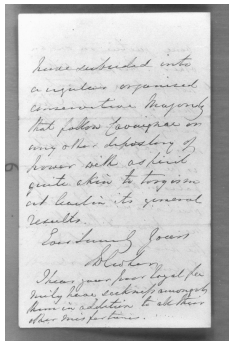 have subsided into
a regular organised
conservative Majority
that follow Cavaignac or
any other depository of
power with a spirit
quite akin to toryism
at least in its general
results.
Ever Sincerely Yours
I hear your poor loyal fa
mily have sickness amongst
them in addition to all their
other misfortunes.